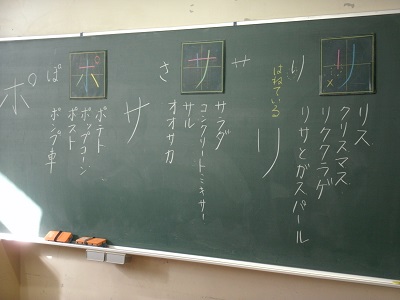 り
リ
はねている
リ
リス
クリスマス
リククラゲ
リサとガスパール
さ
サ
サ
サ
サラダ
コンクリートミキサー
サル
オオサカ
ぽ
ポ
ポ
ポテト
ポップコーン
ポスト
ポンプ車